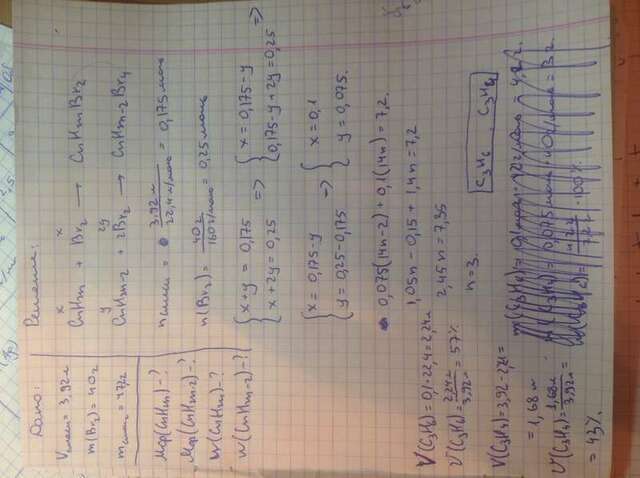 Дано:
Vсмеси = 3,92л
m(Br2) = 40г
mсмеси = 7,2г
Mср(CnHm) - ?
Mср(CnHm-2) - ?
w(CnHm) - ?
w(CnHm-2) - ?
Решение:
x x
CnHm + Br2 → CnHmBr2
y 2y
CnHm-2 + 2Br2 → CnHm-2Br4
nсмеси = 3,92л / 22,4л/моль = 0,175моль
n(Br2) = 40г / 160г/моль = 0,25моль
{ x + y = 0,175 => { x = 0,175 - y =>
{ x + 2y = 0,25 { 0,175 - y + 2y = 0,25
{ x = 0,175 - y => { x = 0,1
{ y = 0,25 - 0,175 { y = 0,075.
0,075(14n-2) + 0,1(14n) = 7,2.
1,05n - 0,15 + 1,4n = 7,2
2,45n = 7,35
n = 3.
C3H6, C3H4
V(C3H6) = 0,1·22,4 = 2,24л
V(C3H6) = 2,24л / 3,92л = 57%
V(C3H4) = 3,92 - 2,24 =
= 1,68л
V(C3H4) = 1,68л / 3,92л =
= 43%.